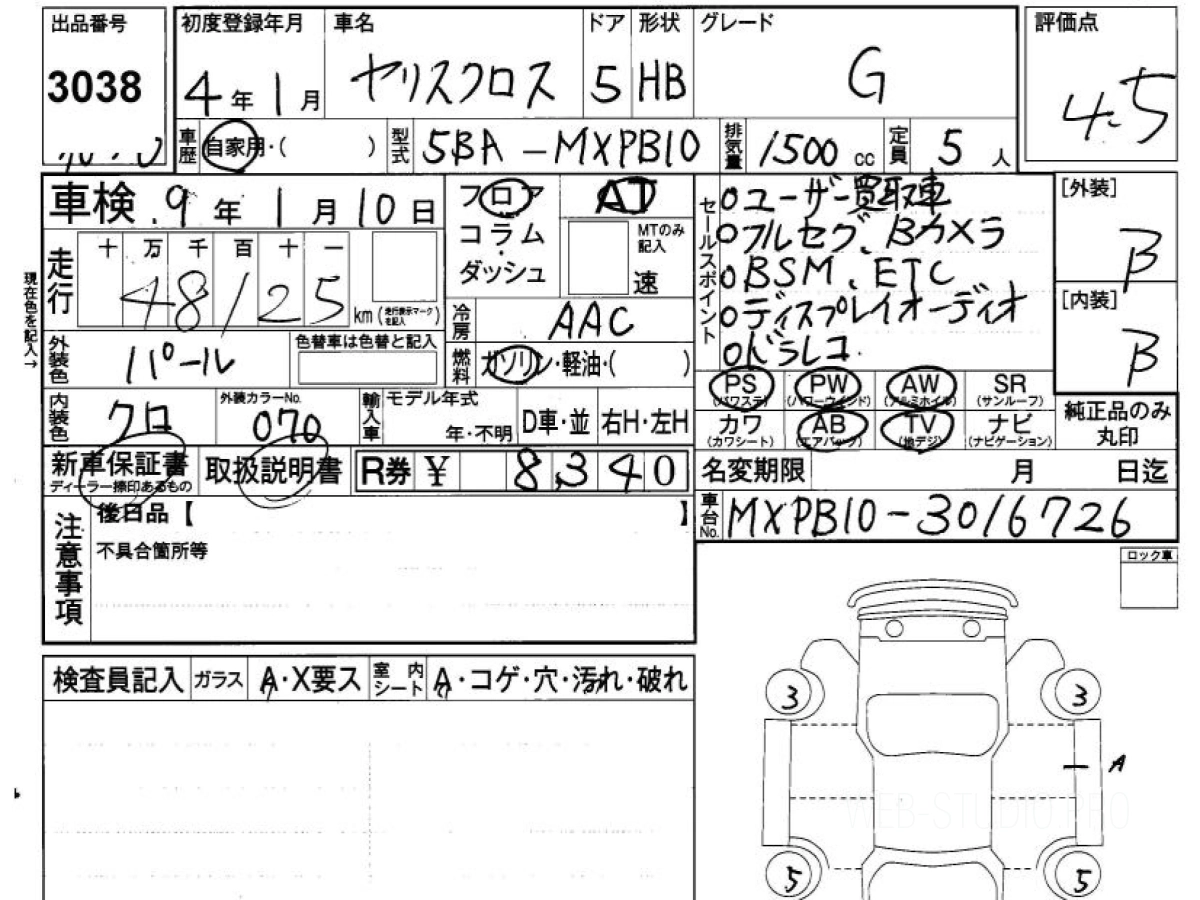 出品番号
3038
初度登録年月
4年1月
車名
ヤリスクロス
ドア
5
形状
HB
グレード
G
評価点
4.5
車歴
自家用・( )
型式
5BA-MXPB10
排気量
1500cc
定員
5人
車検 9年1月10日
フロア
コラム
ダッシュ
AT
MTのみ
記入
速
セールスポイント
○ユーザー買取車
○フルセグ、Bカメラ
○BSM、ETC
○ディスプレイオーディオ
○ドラレコ
[外装]
B
[内装]
B
現在色を記入→
走行
十 万 千 百 十 一
48125
km(走行表示マークを記入)
冷房
AAC
外装色
パール
色替車は色替と記入
燃料
ガソリン・軽油・( )
内装色
クロ
外装カラーNo.
070
輸入車
モデル年式
年・不明
D車・並
右H・左H
PS
(パワステ)
PW
(パワーウインド)
AW
(アルミホイル)
SR
(サンルーフ)
カワ
(カワシート)
AB
(エアバック)
TV
(地デジ)
ナビ
(ナビゲーション)
純正品のみ
丸印
新車保証書
ディーラー捺印あるもの
取扱説明書
R券 ¥ 8,340
名変期限 月 日迄
車台No.
MXPB10-3016726
注意事項
後日品【 】
不具合箇所等
ロック車
検査員記入
ガラス
A・X要ス
室内シート
A・コゲ・穴・汚れ・破れ
3
3
A
5
5
WEB-STUDIO.PRO